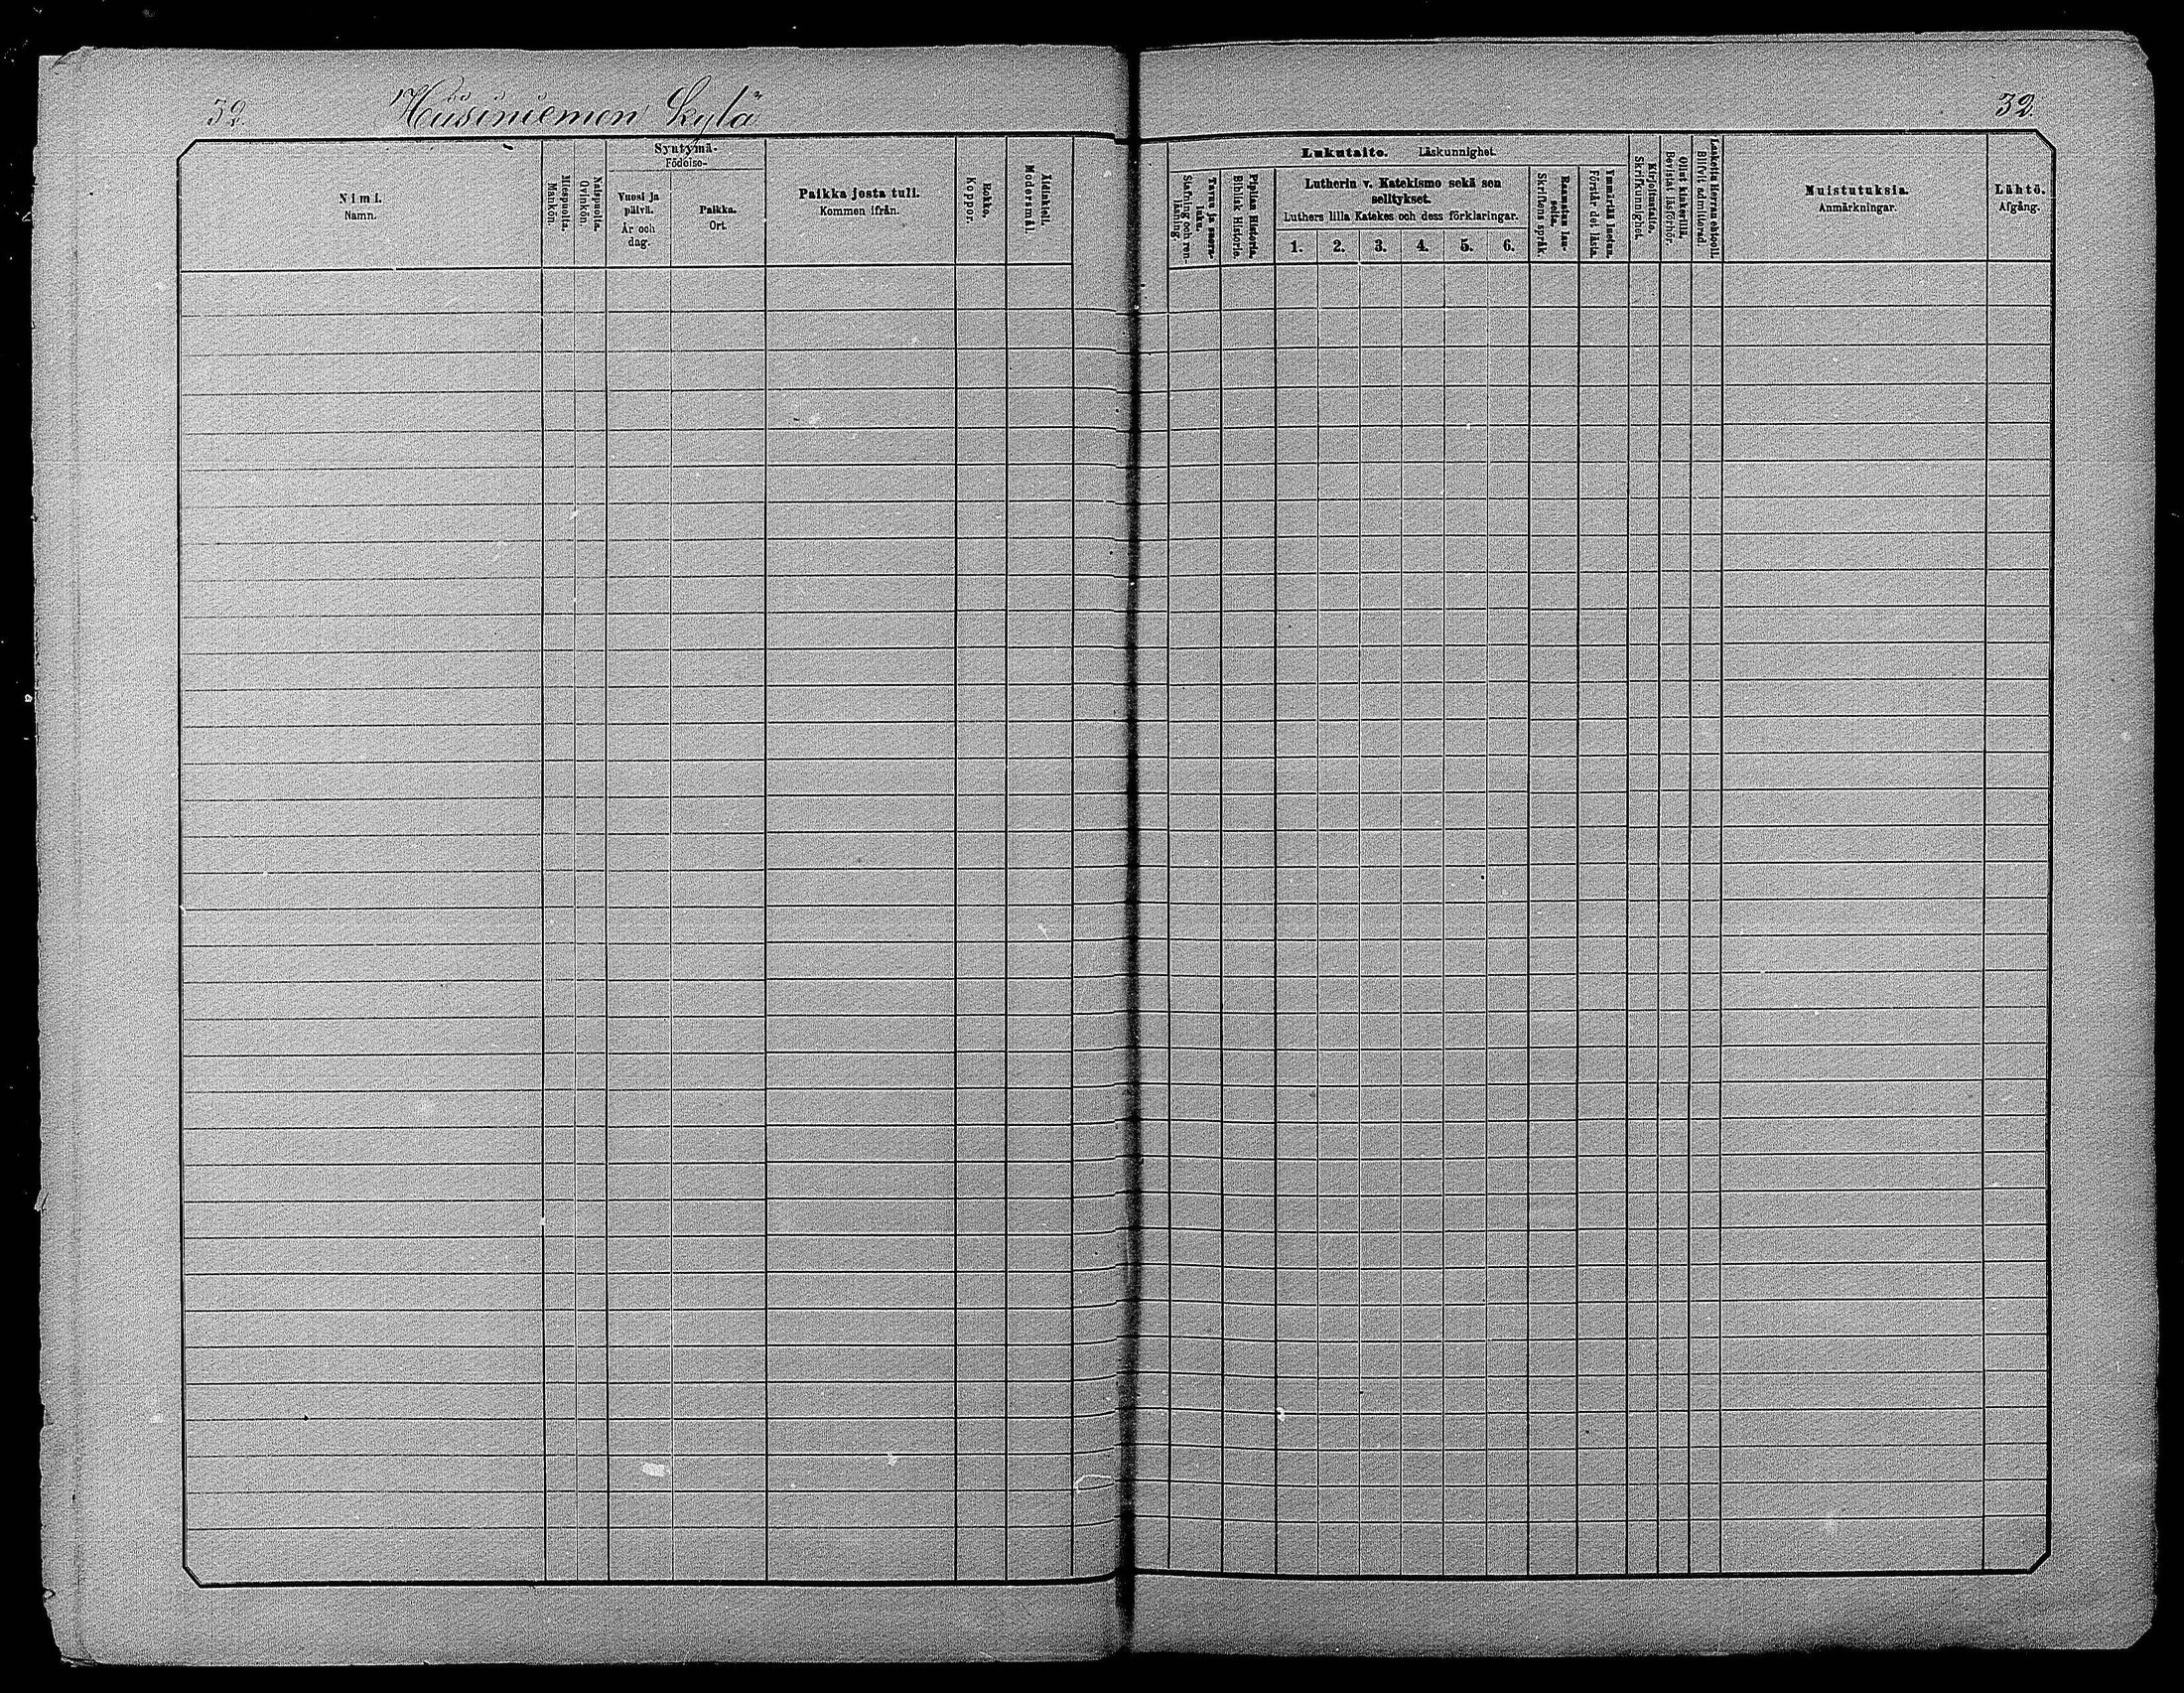 32. Hiisiniemen Kylä 32.
Nimi.
Namn.
Miespuolia.
Mankön.
Naispuolia.
Qvinkön.
Syntymä-
Födelse-
Vuosi ja
päivä.
År och
dag.
Paikka.
Ort.
Paikka josta tuli.
Kommen ifrån.
Rokko.
Koppor.
Äidinkieli.
Modersmål.
Lukutaito. Läskunnighet.
Tavuu ja suora-
luku.
Stafning och ren-
läsning.
Piplian Historia.
Biblisk Historie.
Lutherin v. Katekismo sekä sen
selitykset.
Luthers lilla Katekes och dess förklaringar.
1. 2. 3. 4. 5. 6.
Raamatun lau-
seita.
Skriftens språk.
Ymmärtää luetun.
Förstår det lästa.
Kirjoitustaito.
Skrifkunnighet.
Ollut kinkerillä.
Bevistat läsförhör.
Laskettu Herran ehtooll.
Blifvit admitterad.
Muistutuksia.
Anmärkningar.
Lähtö.
Afgång.